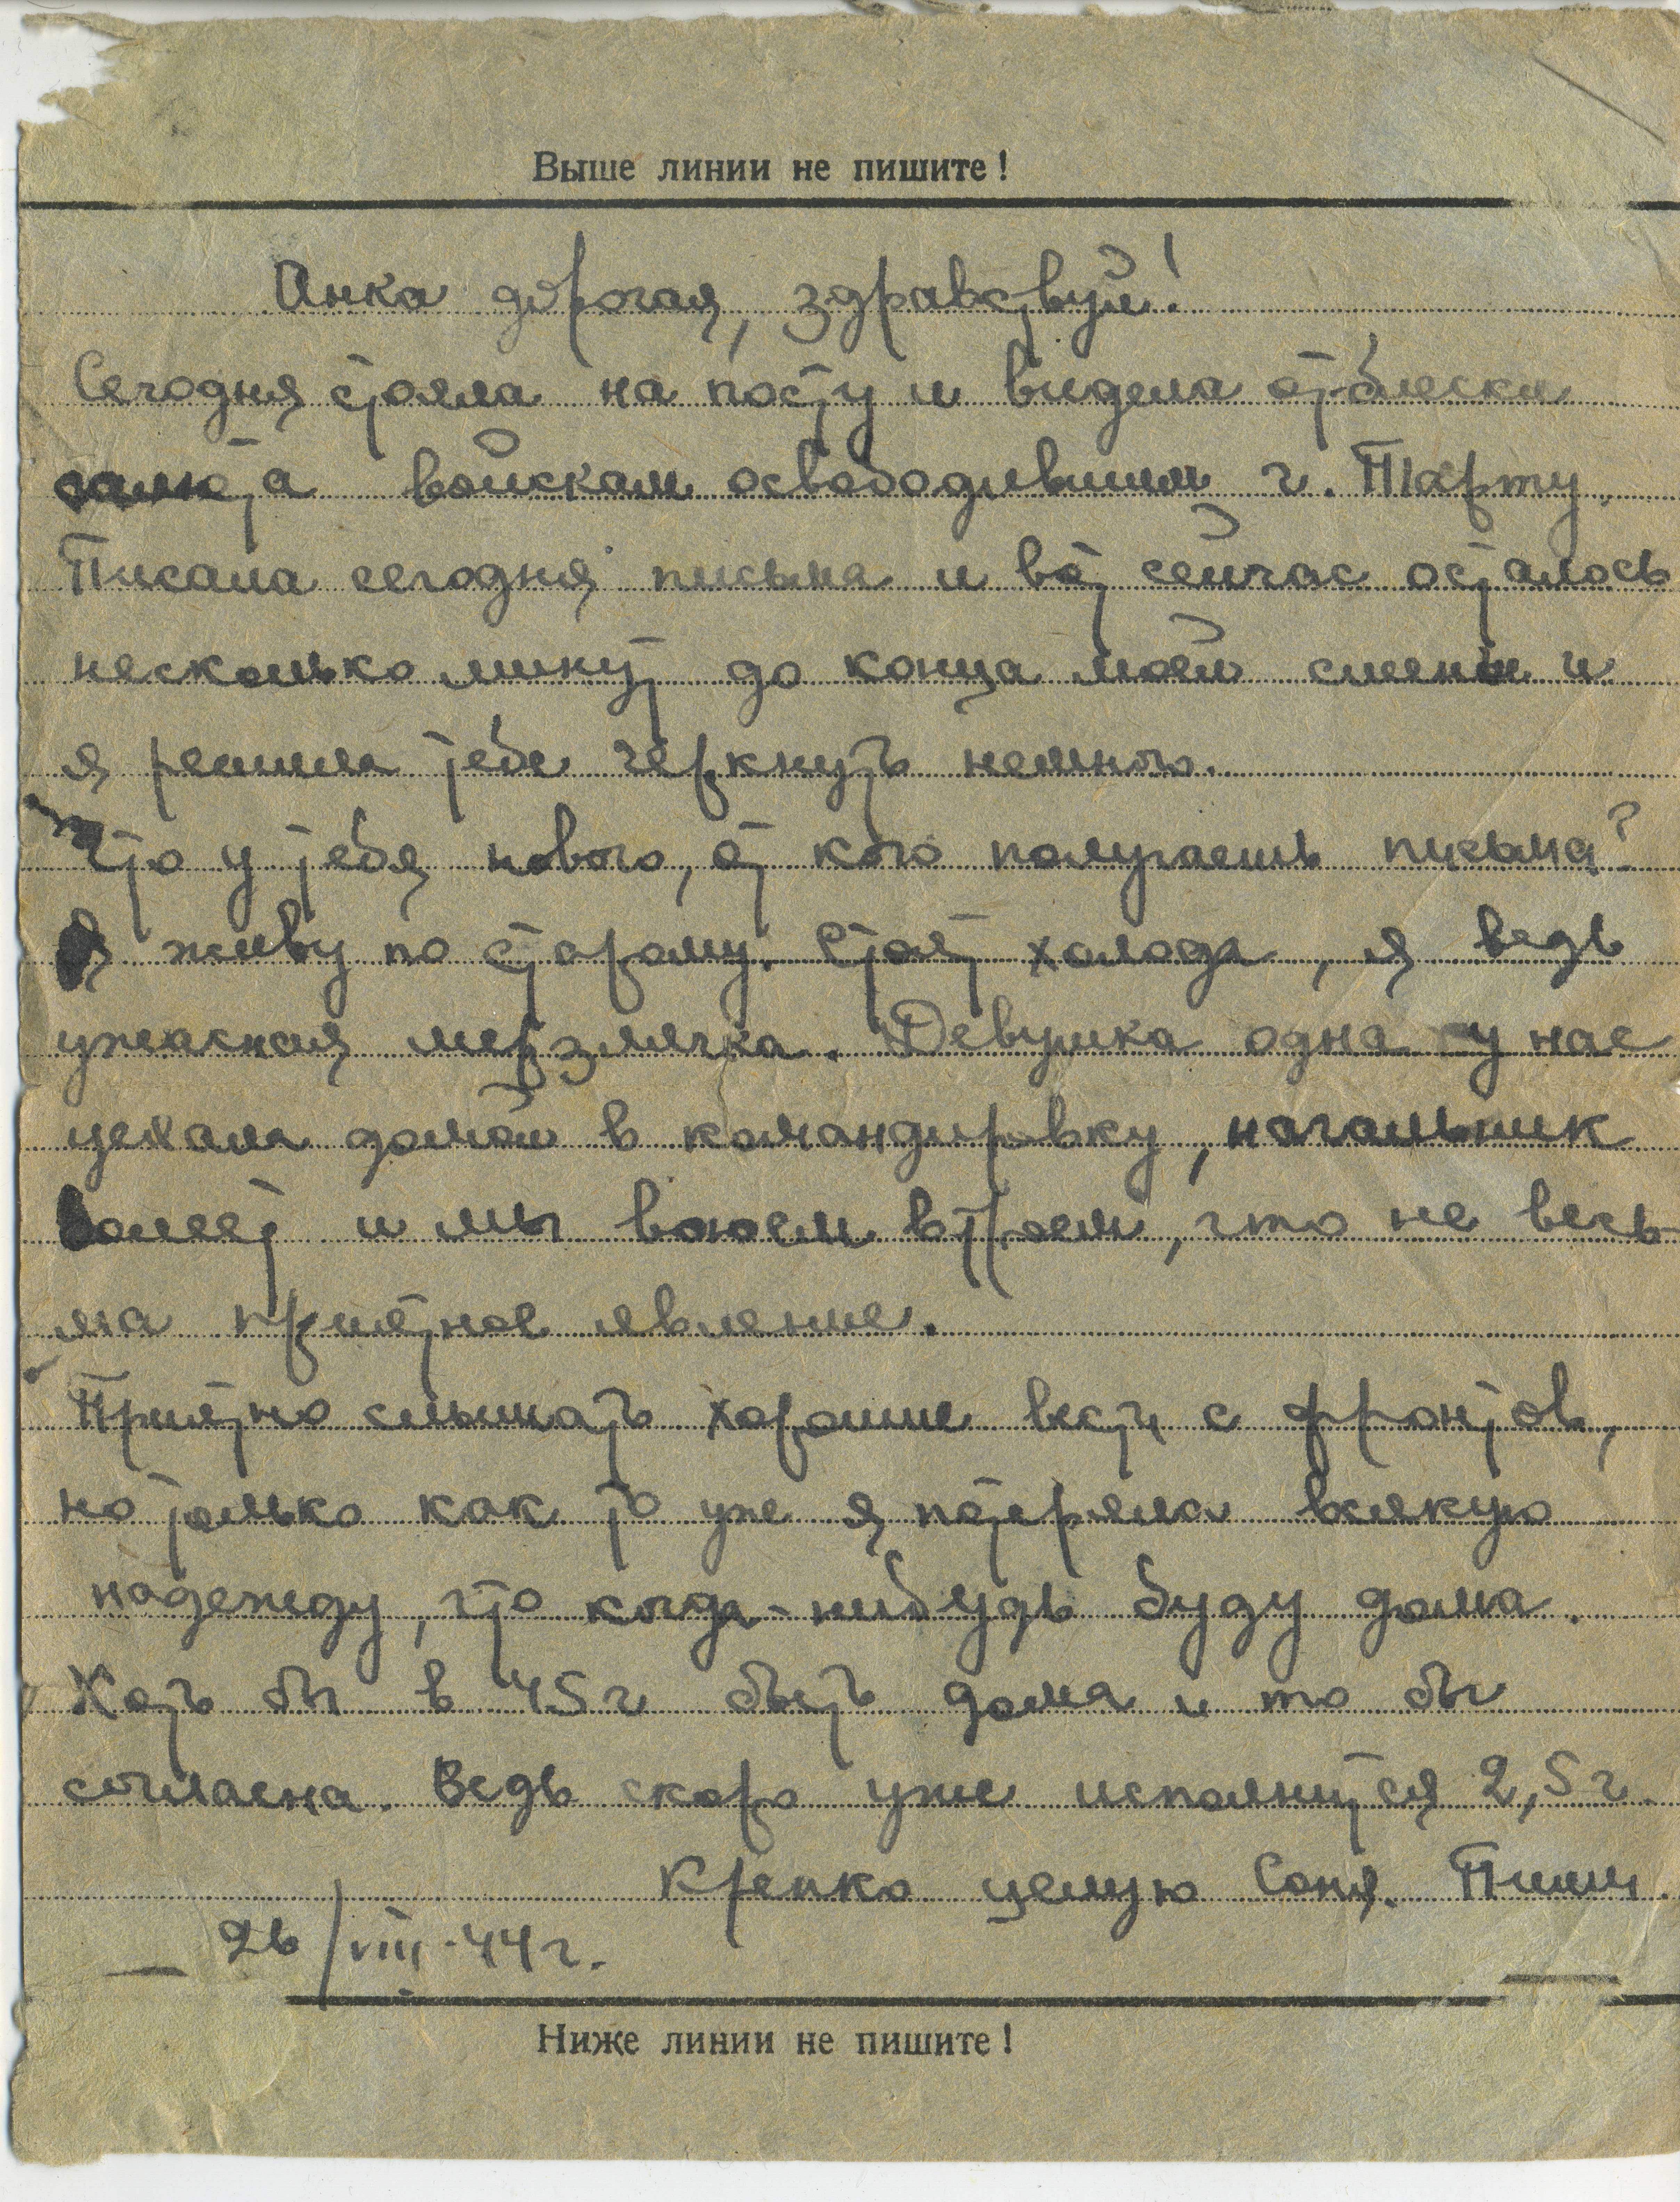 Выше линии не пишите!
Анка дорогая, здравствуй!
Сегодня стояла на посту и видела отблески
салюта войскам освободившим г. Тарту.
Писала сегодня письма и вот сейчас осталось
несколько минут до конца моей смены и
я решила тебе черкнуть немного.
Что у тебя нового, от кого получаешь письма?
Я живу по старому. Стоят холода, я ведь
ужасная мерзлячка. Девушка одна у нас
уехала домой в командировку, начальник
болеет и мы воюем втроем, что не весь
ма приятное явление.
Приятно слышать хорошие вести с фронтов,
но только как то уже я потеряла всякую
надежду, что когда-нибудь буду дома.
Хоть бы в 45 г быть дома и то бы
согласна. Ведь скоро уже исполнится 2,5 г.
Крепко целую Соня. Пиши.
26/VIII-44 г.
Ниже линии не пишите!